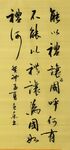 能以禮讓為國乎何有
不能以禮讓為國如
禮何